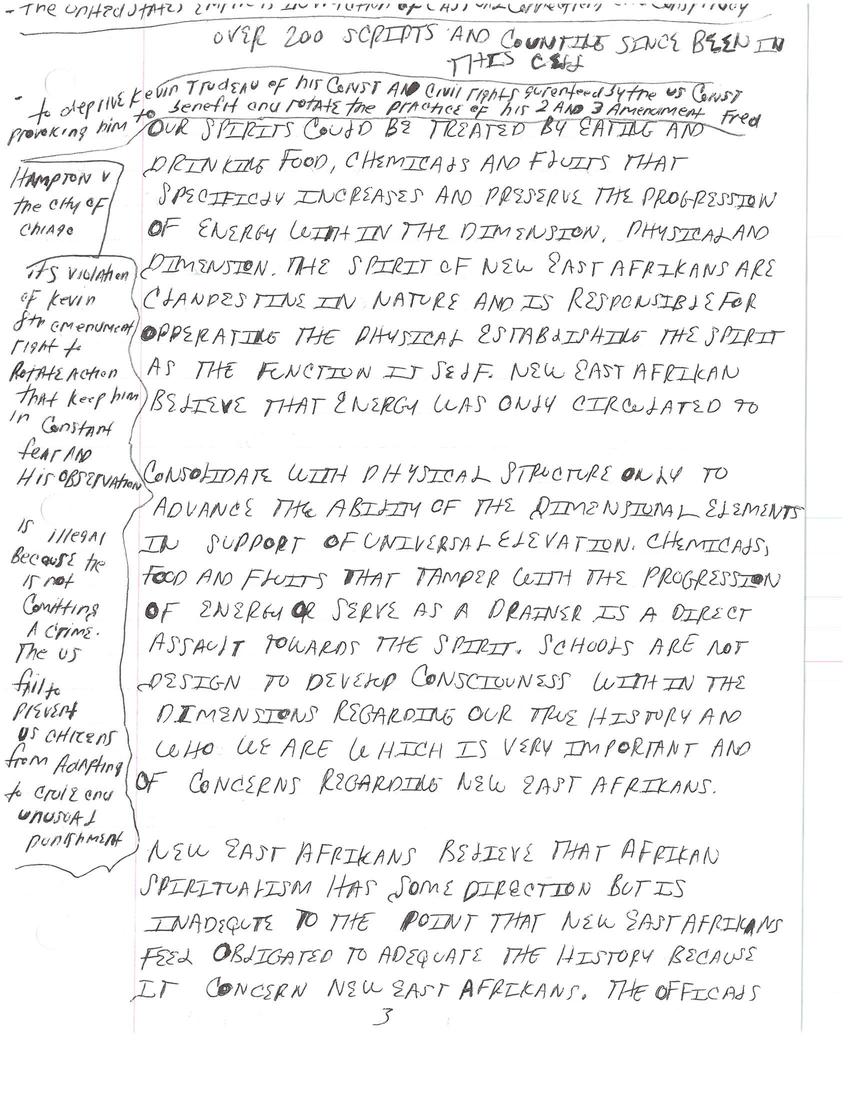 - The united states
OVER 200 SCRIPTS AND COUNTING SINCE BEEN IN
THIS CELL
- to deprive Kevin Trudeau of his Const AND civil rights gurenteed by the US CONST
provoking him to benefit and rotate the practice of his 2 AND 3 Amendment Fred
HAMPTON V
the city of
Chiago
its violation
of Kevin
8th amenument
right to
ROTATE Action
that keep him
in Constant
fear AND
His OBSERVATION
is illegal
Because he
is not
Comitting
A crime.
The US
fail to
PREVENT
US CHITZENS
from Adapting
to cruie and
unusual
punishment
OUR SPIRITS COULD BE TREATED BY EATING AND
DRINKING FOOD, CHEMICALS AND FLUITS THAT
SPECIFICLY INCREASES AND PRESERVE THE PROGRESSION
OF ENERGY WITH IN THE DIMENSION, PHYSICAL AND
DIMENSION. THE SPIRIT OF NEW EAST AFRIKANS ARE
CLANDESTINE IN NATURE AND IS RESPONSIBLE FOR
OPPERATING THE PHYSICAL ESTABLISHING THE SPIRIT
AS THE FUNCTION IT SELF. NEW EAST AFRIKAN
BELIEVE THAT ENERGY WAS ONLY CIRCULATED TO
CONSOLIDATE WITH PHYSICAL STRUCTURE ONLY TO
ADVANCE THE ABILITY OF THE DIMENSIONAL ELEMENTS
IN SUPPORT OF UNIVERSAL ELEVATION. CHEMICALS,
FOOD AND FLUITS THAT TAMPER WITH THE PROGRESSION
OF ENERGY OR SERVE AS A DRAINER IS A DIRECT
ASSAULT TOWARDS THE SPIRIT. SCHOOLS ARE NOT
DESIGN TO DEVELOP CONSCIOUNESS WITH IN THE
DIMENSIONS REGARDING OUR TRUE HISTORY AND
WHO WE ARE WHICH IS VERY IMPORTANT AND
OF CONCERNS REGARDING NEW EAST AFRIKANS.
NEW EAST AFRIKANS BELIEVE THAT AFRIKAN
SPIRITUALISM HAS SOME DIRECTION BUT IS
INADEQUTE TO THE POINT THAT NEW EAST AFRIKANS
FEEL OBLIGATED TO ADEQUATE THE HISTORY BECAUSE
IT CONCERN NEW EAST AFRIKANS. THE OFFICALS
3